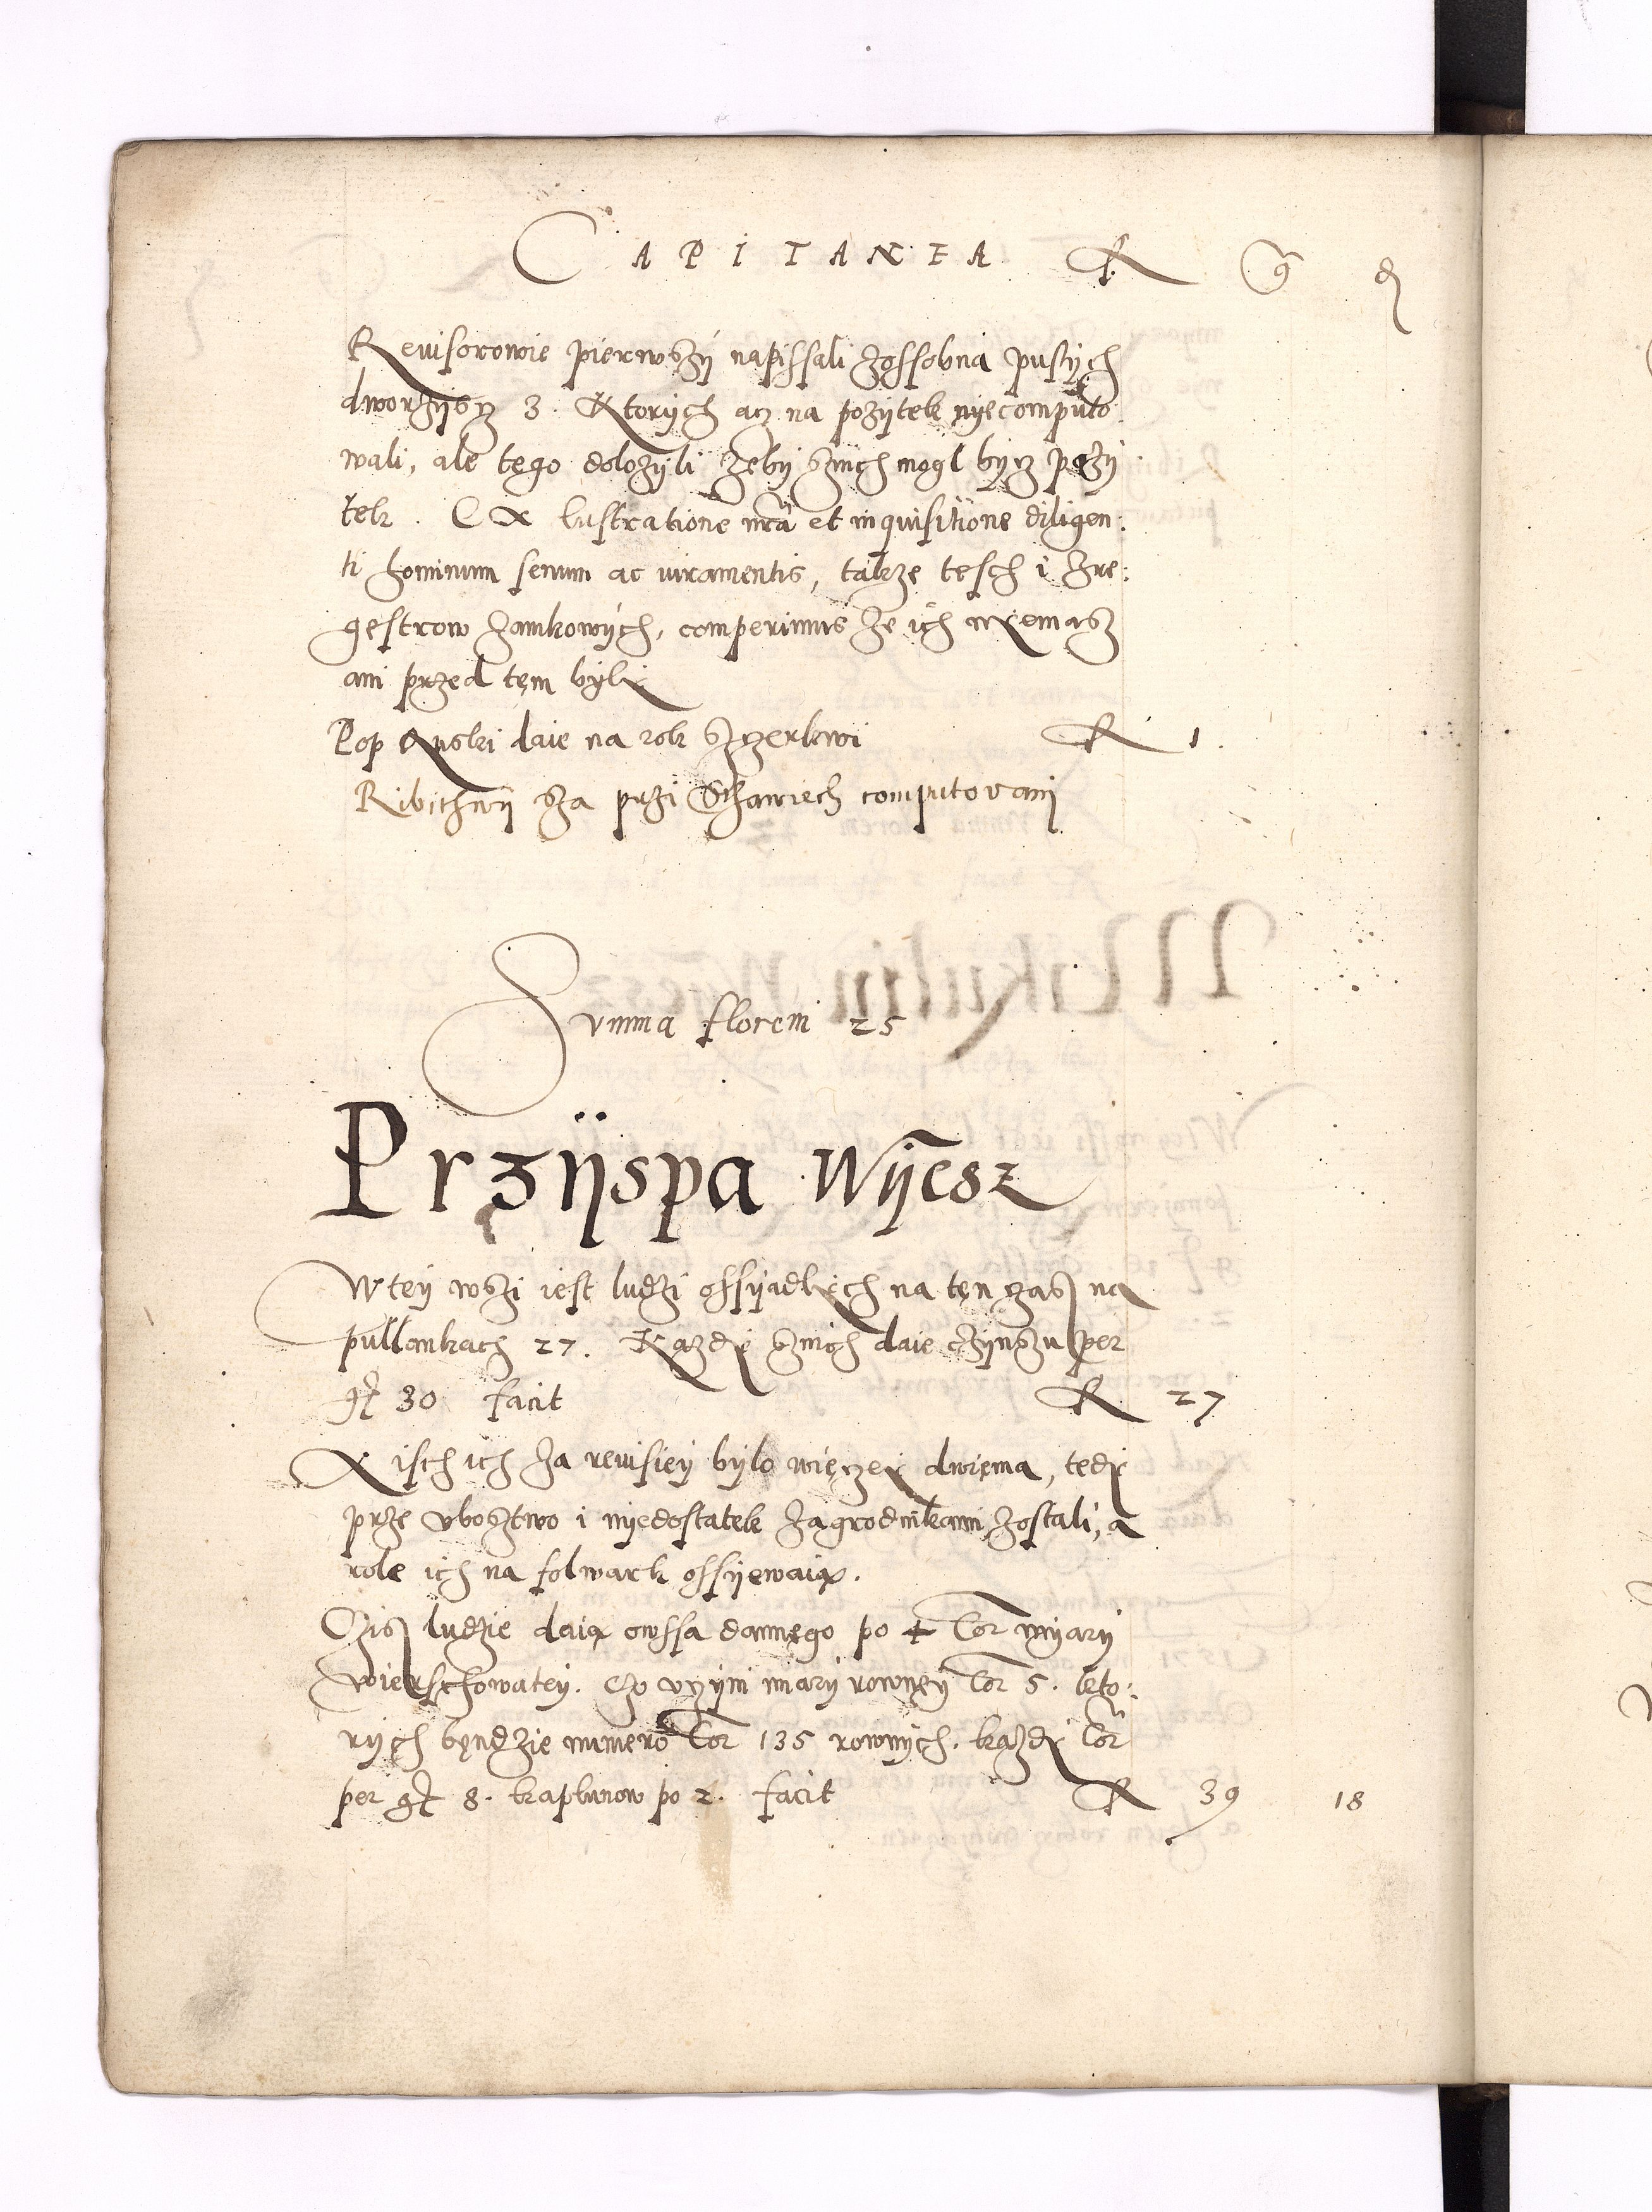 CAPITANEA fl gr d
Reuisorowie pierwszÿ napissali zossobna pustÿch
dworzÿscz 3. Ktorÿch acz na pozÿtek nÿecomputo:
wali, ale tego dolozÿli zebÿ sznich mogl bÿcz pozÿ:
tek. Ex lustratione nrã et inquisitione diligen:
ti hominum senum ac iuramentis, takze tesch i zre:
gestrow zamkowÿch, comperimus ze ich nÿemasz
ani przed tem bÿli
Pop ruski daie na rok szczerkwi fl 1.
Ribithwÿ sza przi Sthawiech computovanÿ
Summa floreni 25
Przÿspa Wÿesz
W teÿ wszi iest ludzi ossÿadlÿch na ten czas na
pullankach 27. Kazdÿ sznich daie czÿnszu per
gr 30 facit fl 27
A isch ich za reuisieÿ bÿlo więczeÿ dwiema, tedÿ
prze vbosztwo i nÿedostatek zagrodnikami zostali, a
role ich na folwark ossÿewaią.
Czis ludzie daią owssa dannego po 4 Cor mÿarÿ
wierschowateÿ. Czo vczÿni miarÿ rowneÿ Cor 5. kto:
rÿch bęndzie numero Cor 135 rownÿch. kazdÿ Cor
per gr 8. kaplunow po 2. facit fl 39 18